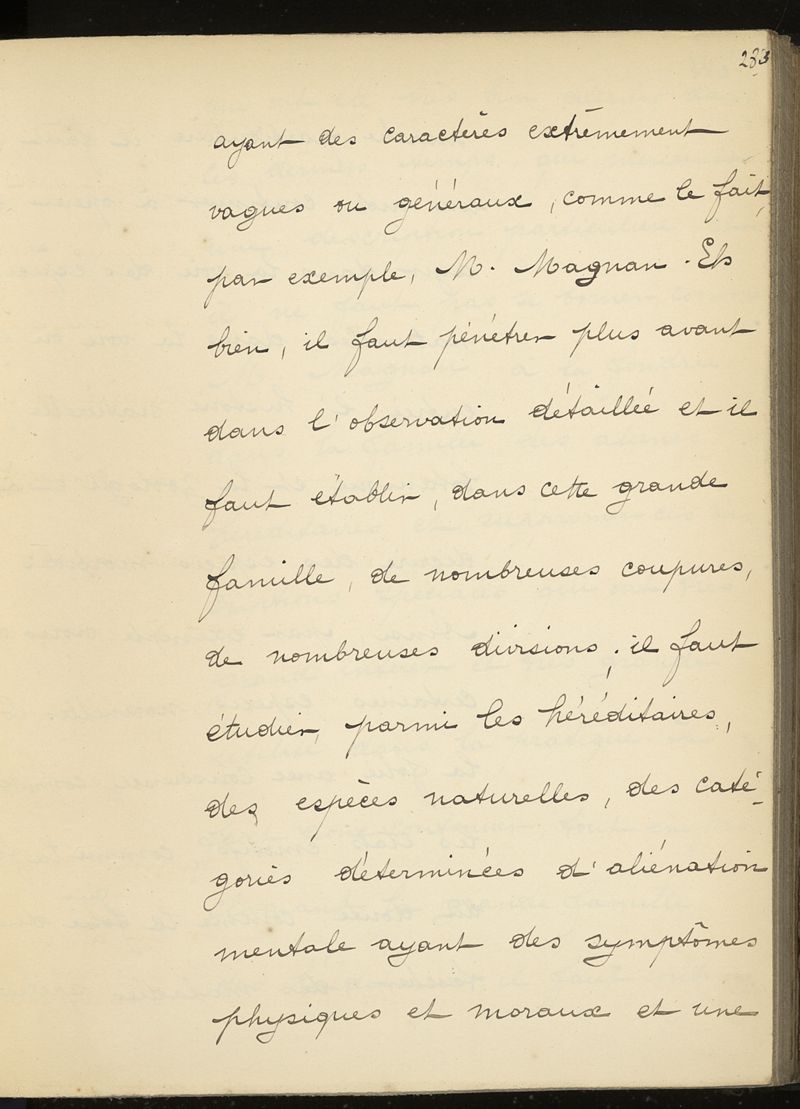 283
ayant des caractères extrêmement
vagues ou généraux, comme le fait,
par exemple, M. Magnan. Eh
bien, il faut pénétrer plus avant
dans l'observation détaillée et il
faut établir, dans cette grande
famille, de nombreuses coupures,
de nombreuses divisions ; il faut
étudier, parmi les héréditaires,
des espèces naturelles, des caté-
gories déterminées d'aliénation
mentale ayant des symptômes
physiques et moraux et une